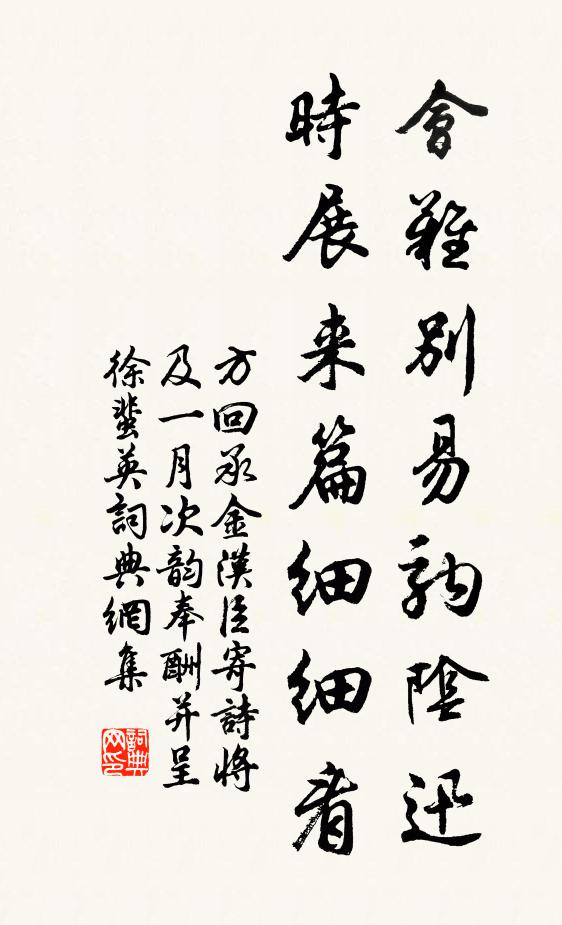 會難別易駒陰迅
時展来篇細細看
方回承金漢臣寄詩將
及一月次韵奉酬并呈
徐蜚英詞典網集
詞典
网印